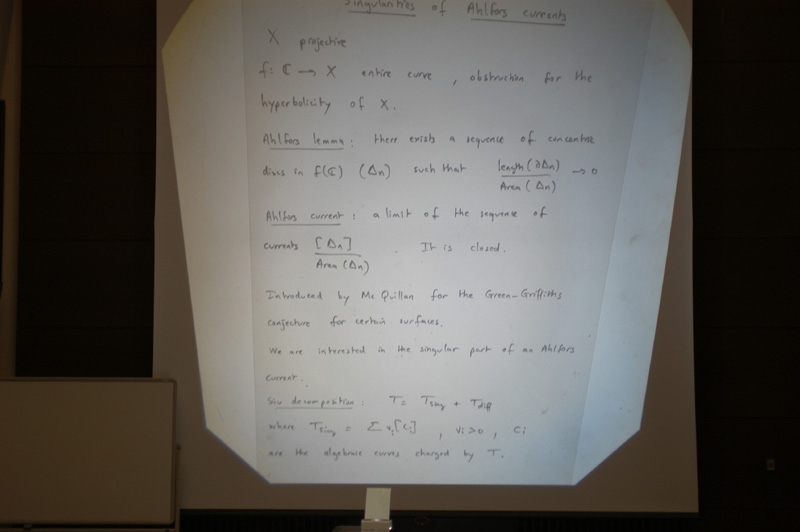 Singularities of Ahlfors currents
X projective
f: ℂ → X entire curve, obstruction for the
hyperbolicity of X.
Ahlfors lemma: there exists a sequence of concentric
discs in f(ℂ) (Δn) such that length(∂Δn) / Area(Δn) → 0
Ahlfors current: a limit of the sequence of
currents [Δn] / Area(Δn). It is closed.
Introduced by Mc Quillan for the Green-Griffiths
conjecture for certain surfaces.
We are interested in the singular part of an Ahlfors
current.
Siu decomposition: T = Tsing + Tdiff
where Tsing = Σ νi[Ci], νi > 0, Ci
are the algebraic curves charged by T.